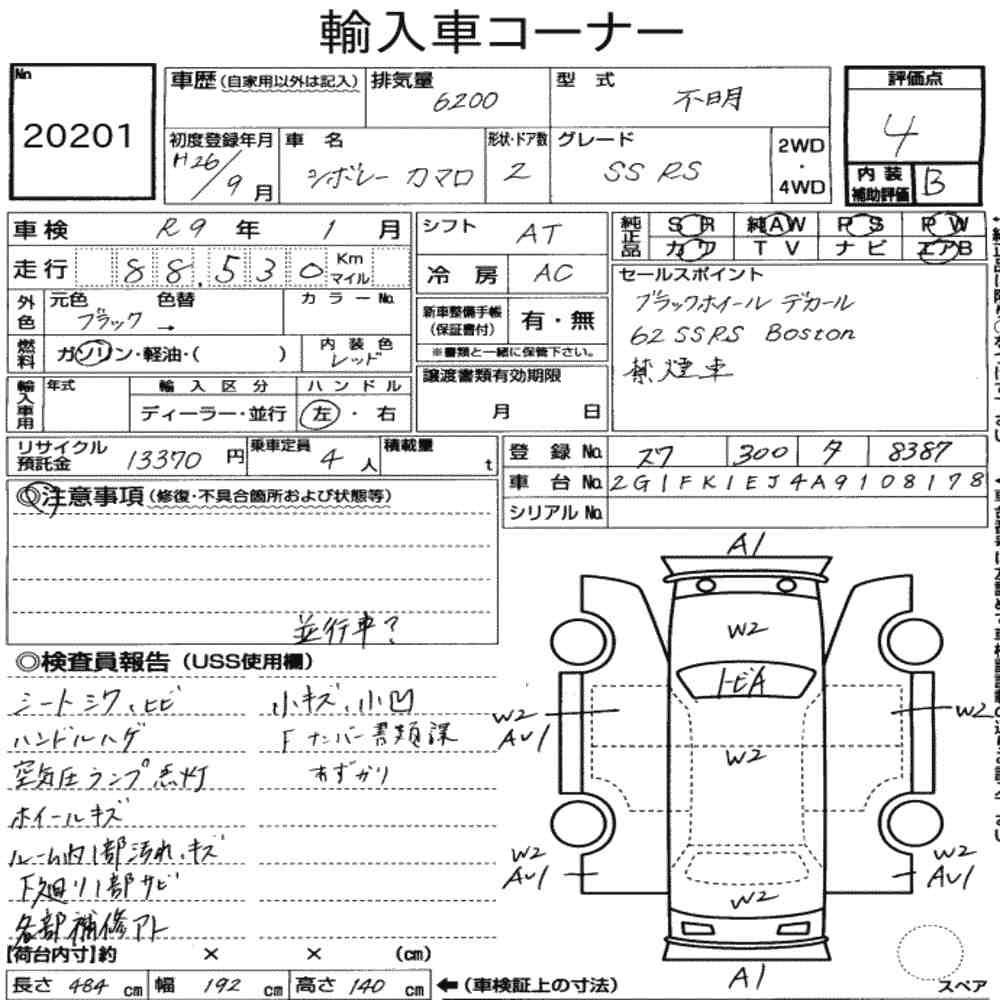 輸入車コーナー
No
20201
車歴 (自家用以外は記入)
排気量
6200
型式
不明
評価点
4
初度登録年月
H26/9月
車名
シボレー カマロ
形状・ドア数
2
グレード
SS RS
2WD
・
4WD
内装
補助評価
B
車検 R9年 1月
シフト AT
純正品
SR 純AW PS PW
カワ TV ナビ エアB
走行 88,530 Km
マイル
冷房 AC
セールスポイント
ブラックホイール デカール
62 SSRS Boston
禁煙車
外色
元色 色替
ブラック →
カラーNo.
新車整備手帳
(保証書付)
有・無
※書類と一緒に保管下さい。
燃料
ガソリン・軽油・( )
内装色
レッド
輸入車用
年式
輸入区分
ディーラー・並行
ハンドル
左・右
譲渡書類有効期限
月 日
リサイクル
預託金
13370 円
乗車定員
4 人
積載量
t
登録No. スワ 300 タ 8387
車台No. 2G1FK1EJ4A9108178
シリアルNo.
◎注意事項 (修復・不具合箇所および状態等)
並行車?
◎検査員報告 (USS使用欄)
シートシワ、ヒビ
小キズ、小凹
ハンドルハゲ
Fナンバー書類課
空気圧ランプ点灯
あずかり
ホイールキズ
ルーム内1部汚れ、キズ
下廻り1部サビ
各部補修アト
A1
W2
トビA
W2
AU1
W2
W2
W2
AU1
W2
AU1
W2
A1
スペア
【荷台内寸】約 × × (cm)
長さ 484 cm
幅 192 cm
高さ 140 cm
←(車検証上の寸法)